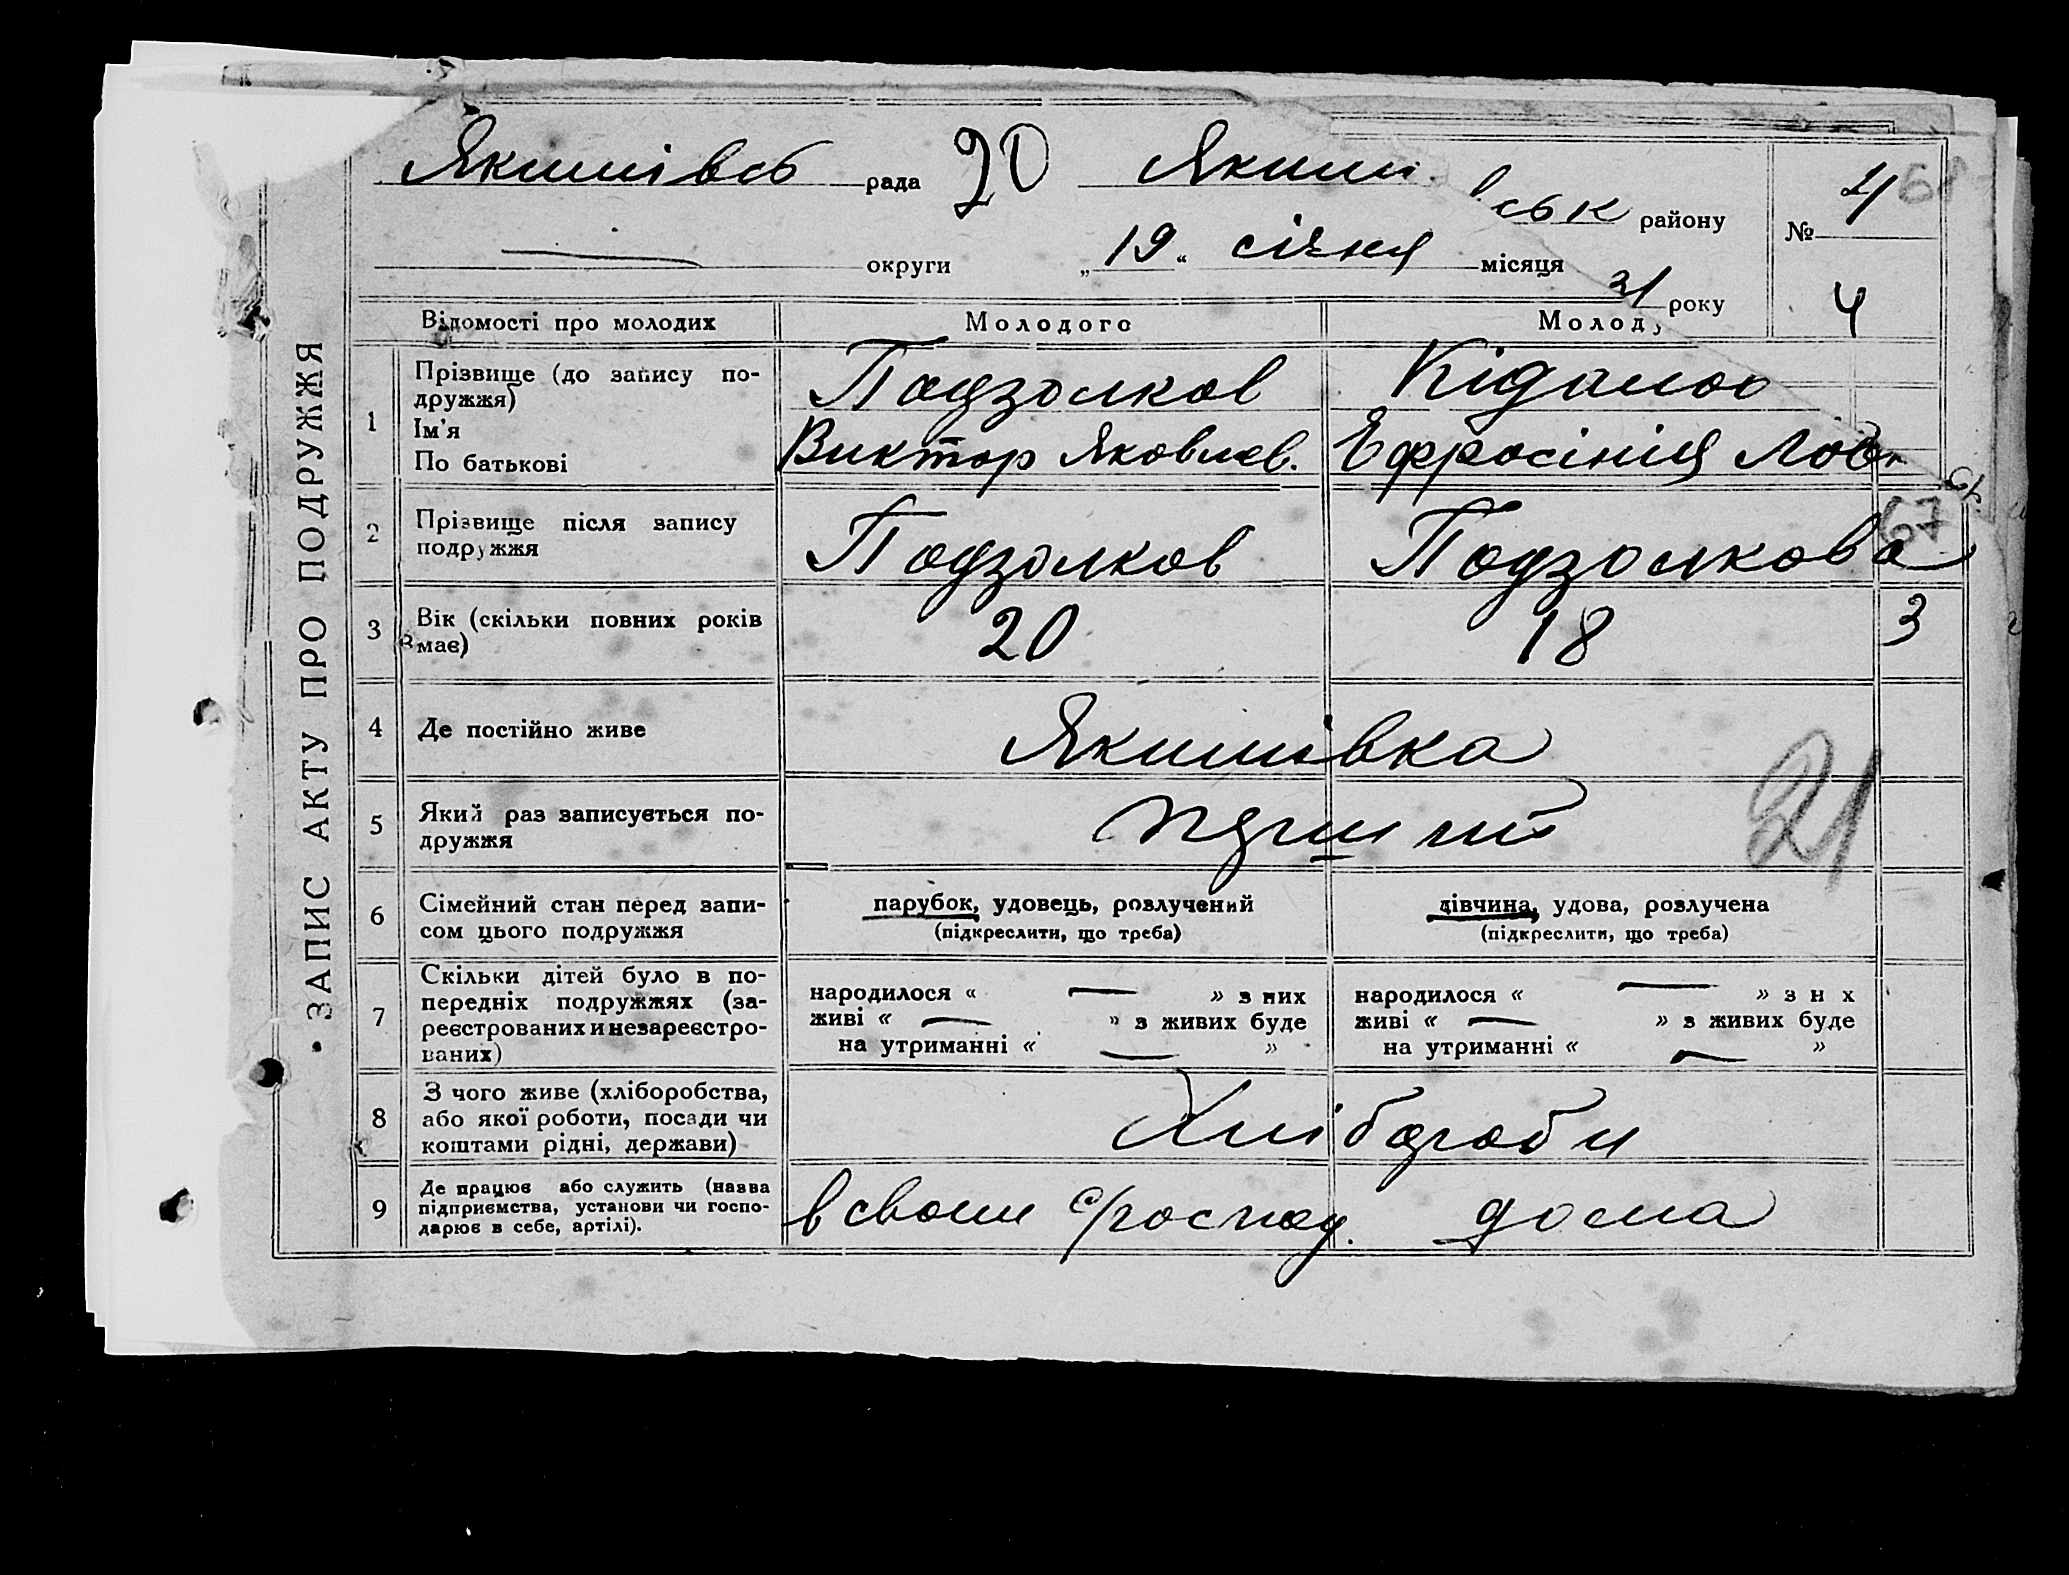 Якимівсь рада 20 Якимі
ськ району
№ 4 68
округи „19“ січня місяця
31 року
4
ЗАПИС АКТУ ПРО ПОДРУЖЖЯ
Відомості про молодих Молодого Молод
1 Прізвище (до запису по-
дружжя)
Ім'я
По батькові
Подзолков
Виктор Яковлев.
Ефросінія
67
2 Прізвище після запису
подружжя
Подзолков Подзолкова
3 Вік (скільки повних років
має)
20 18 3
4 Де постійно живе Якимівка
5 Який раз записується по-
дружжя
перший
21
6 Сімейний стан перед запи-
сом цього подружжя
парубок, удовець, розлучений
(підкреслити, що треба)
дівчина, удова, розлучена
(підкреслити, що треба)
7 Скільки дітей було в по-
передніх подружжях (за-
реєстрованих и незареєстро-
ваних)
народилося « — » з них
живі « — » з живих буде
на утриманні « — »
народилося « — » з н х
живі « — » з живих буде
на утриманні « — »
8 З чого живе (хліборобства,
або якої роботи, посади чи
коштами рідні, держави)
Хлібороби
9 Де працює або служить (назва
підприємства, установи чи госпо-
дарює в себе, артілі).
в своим с/господ. дома